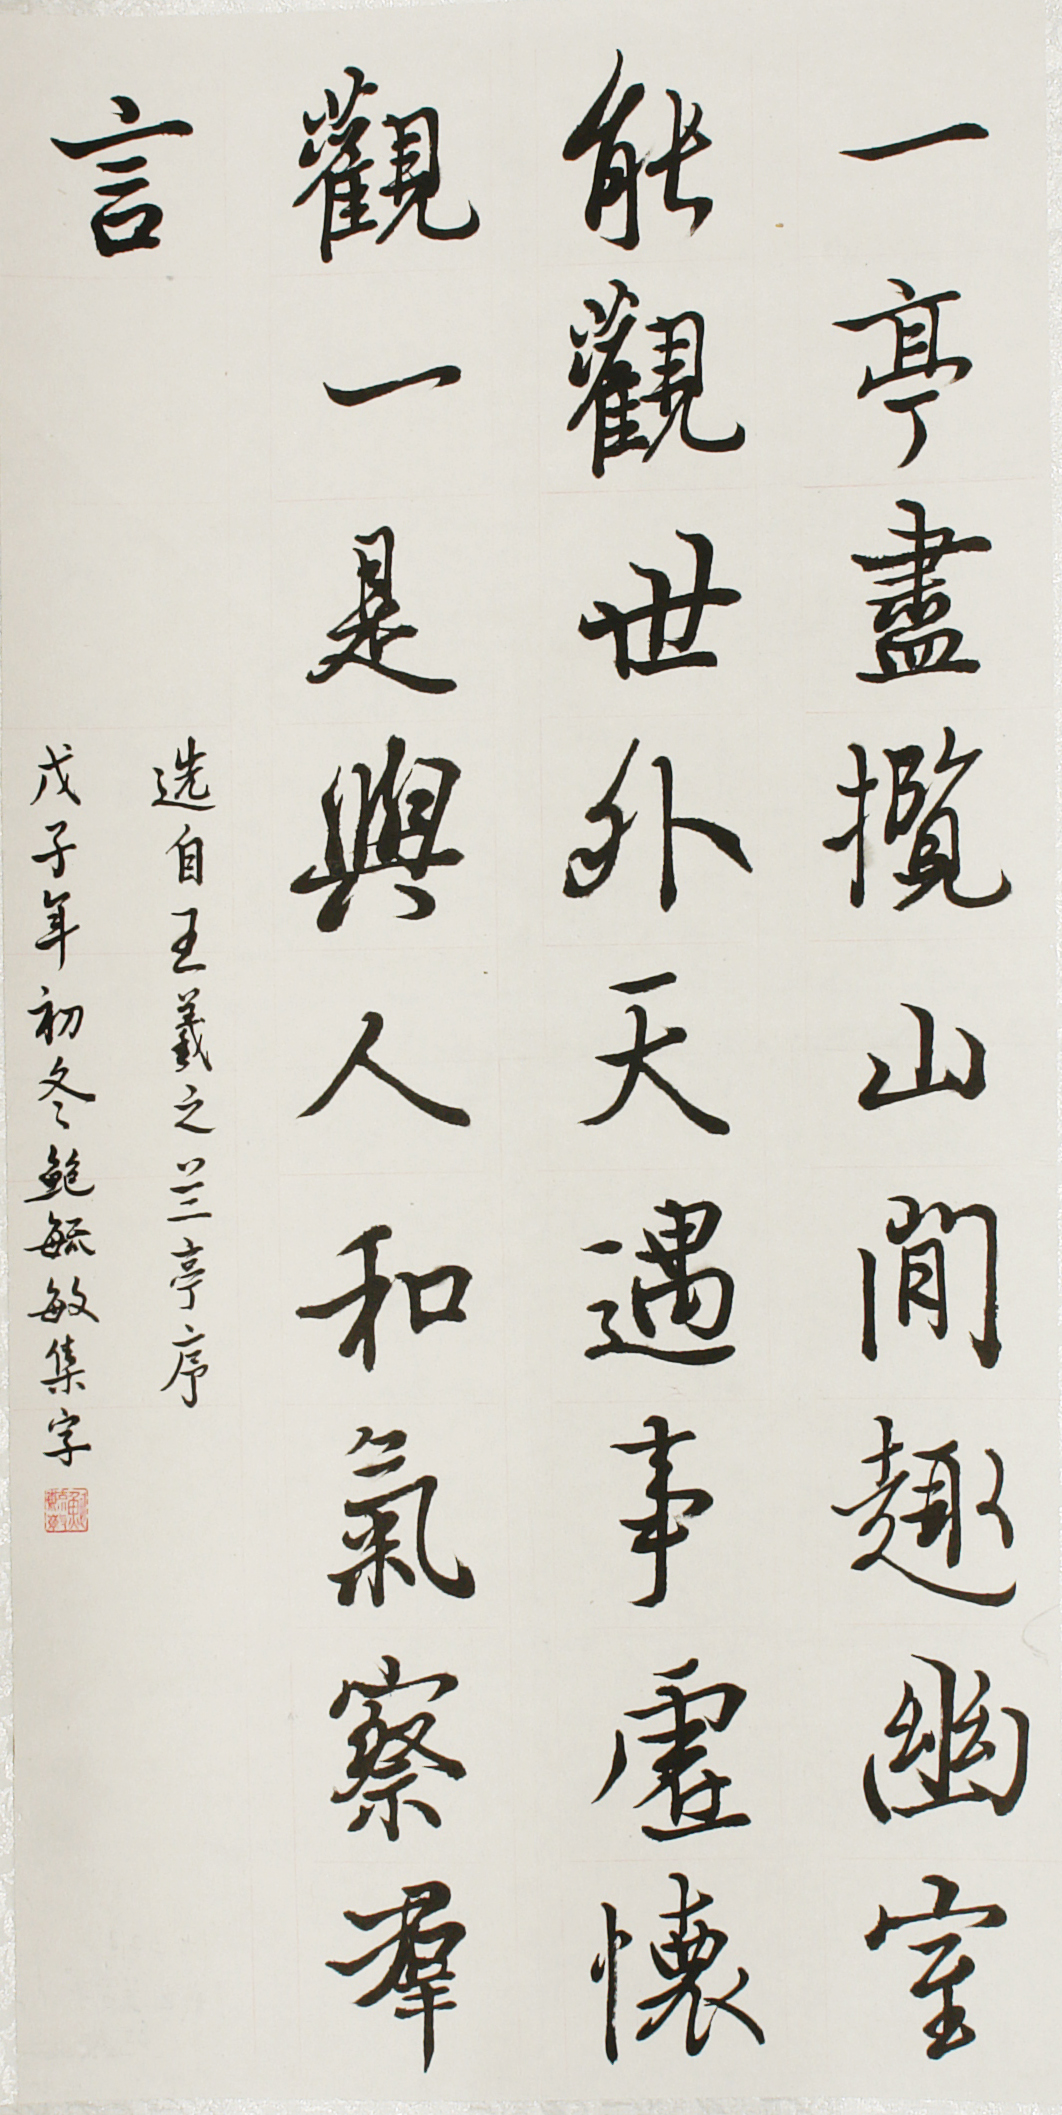 一亭盡攬山間趣幽室
能觀世外天遇事虛懷
觀一是與人和氣察群
言
选自王羲之兰亭序
戊子年初冬鲍毓敏集字